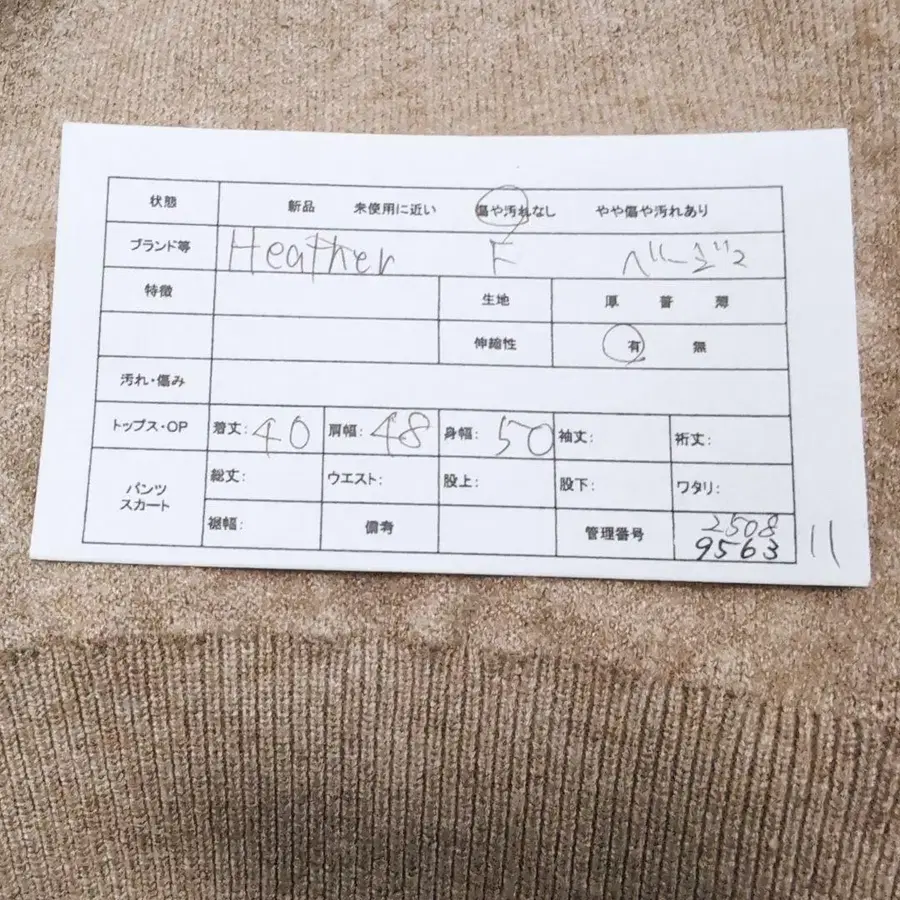 状態 新品 未使用に近い 傷や汚れなし やや傷や汚れあり
ブランド等 Heather F ベージュ
特徴 生地 厚 普 薄
伸縮性 有 無
汚れ・傷み
トップス・OP 着丈: 40 肩幅: 48 身幅: 50 袖丈: 裄丈:
パンツ スカート 総丈: ウエスト: 股上: 股下: ワタリ:
裾幅: 備考 管理番号 2508
9563 11